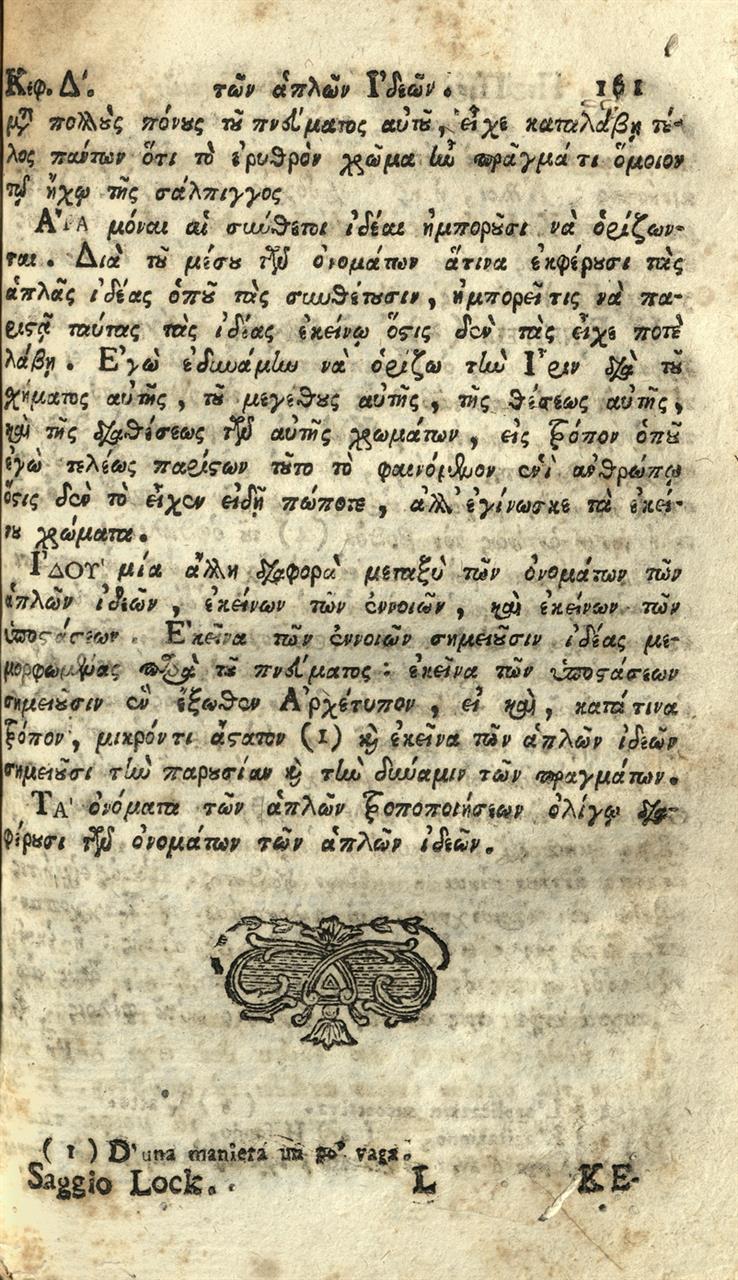 Κεφ. Δ'. τῶν ἁπλῶν Ἰδεῶν. 161
μτ̀ πολλοὺς πόνους τοῦ πνεύματος αὐτοῦ, εἶχε καταλάβῃ τέ-
λος πάντων ὅτι τὸ ἐρυθρὸν χρῶμα ἦν πρᾶγμά τι ὅμοιον
τῷ ἤχῳ τῆς σάλπιγγος
Ἄρα μόναι αἱ σύνθετοι ἰδέαι ἠμποροῦσι νὰ ὁρίζων-
ται. Διὰ τοῦ μέσου τῶν ὀνομάτων ἅτινα ἐκφέρουσι τὰς
ἁπλᾶς ἰδέας ὁποῦ τὰς συνθέτουσιν, ἠμπορεῖ τις νὰ πα-
ριστᾷ ταύτας τὰς ἰδέας ἐκείνῳ ὅστις δὲν τὰς εἶχε ποτὲ
λάβῃ. Ἐγὼ ἐδυνάμην νὰ ὁρίζω τὴν Ἶριν διὰ τοῦ
χήματος αὐτῆς, τοῦ μεγέθους αὐτῆς, τῆς θέσεως αὐτῆς,
καὶ τῆς διαθέσεως τῶν αὐτῆς χρωμάτων, εἰς τρόπον ὁποῦ
ἐγὼ τελέως παρίστων τοῦτο τὸ φαινόμενον ἑνὶ ἀνθρώπῳ
ὅστις δὲν τὸ εἶχεν εἰδῇ πώποτε, ἀλλ' ἐγίνωσκε τὰ ἐκεί-
νου χρώματα.
Ἰδοὺ μία ἄλλη διαφορὰ μεταξὺ τῶν ὀνομάτων τῶν
ἁπλῶν ἰδεῶν, ἐκείνων τῶν ἐννοιῶν, καὶ ἐκείνων τῶν
ὑποστάσεων. Ἐκεῖνα τῶν ἐννοιῶν σημειοῦσιν ἰδέας με-
μορφωμένας παρὰ τοῦ πνεύματος: ἐκεῖνα τῶν ὑποστάσεων
σημειοῦσιν ἓν ἔξωθεν Ἀρχέτυπον, εἰ καὶ, κατά τινα
τρόπον, μικρόν τι ἄστατον (1) καὶ ἐκεῖνα τῶν ἁπλῶν ἰδεῶν
σημειοῦσι τὴν παρουσίαν καὶ τὴν δύναμιν τῶν πραγμάτων.
Τὰ ὀνόματα τῶν ἁπλῶν τροποποιήσεων ὀλίγῳ δια-
φέρουσι τῶν ὀνομάτων τῶν ἁπλῶν ἰδεῶν.
(1) D'una maniera un po' vaga.
Saggio Lock. L ΚΕ-